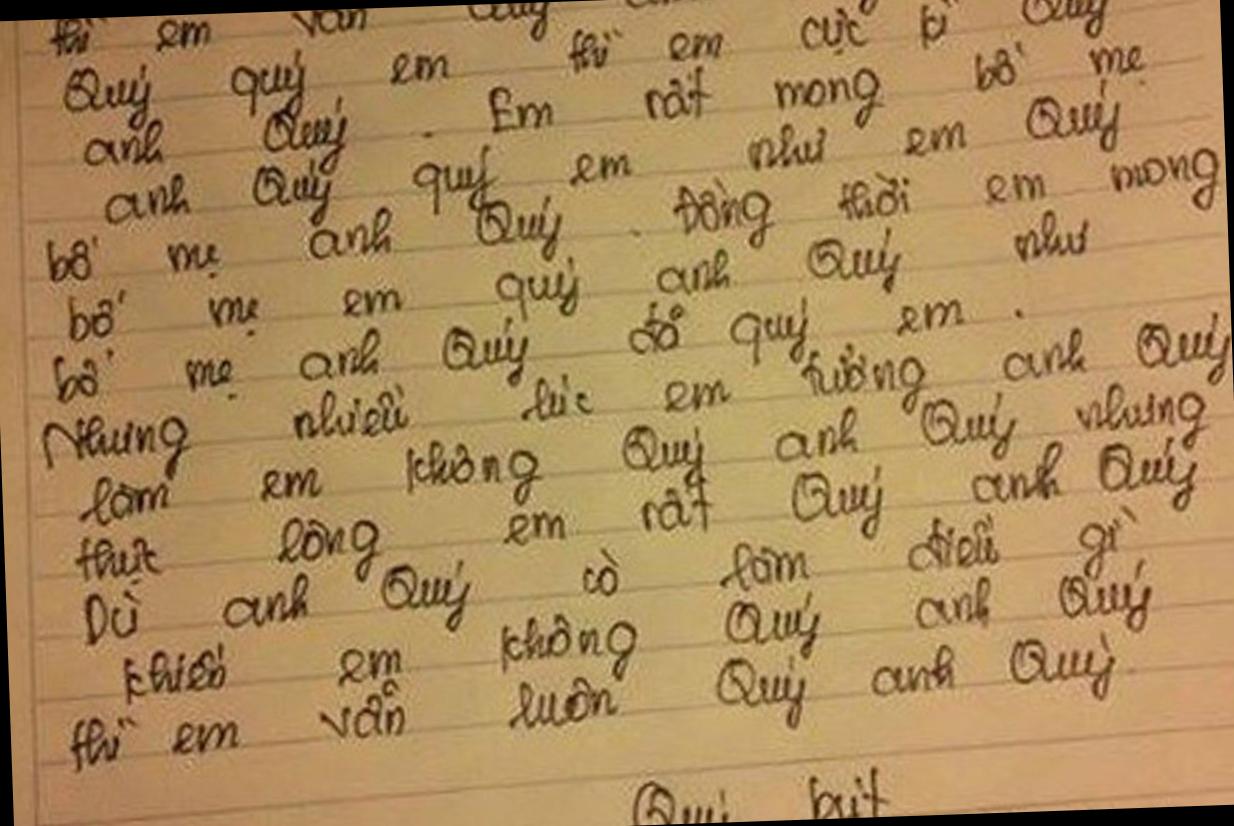 thì em vẫn Quý
Quý quý em thì em cực kì Quý
anh Quý. Em rất mong bố mẹ
anh Quý quý em như em Quý
bố mẹ anh Quý. Đồng thời em mong
bố mẹ em quý anh Quý như
bố mẹ anh Quý đã quý em.
Nhưng nhiều lúc em tưởng anh Quý
làm em không Quý anh Quý nhưng
thực lòng em rất Quý anh Quý
Dù anh Quý có làm điều gì
khiến em không Quý anh Quý
thì em vẫn luôn Quý anh Quý.
Quý bút